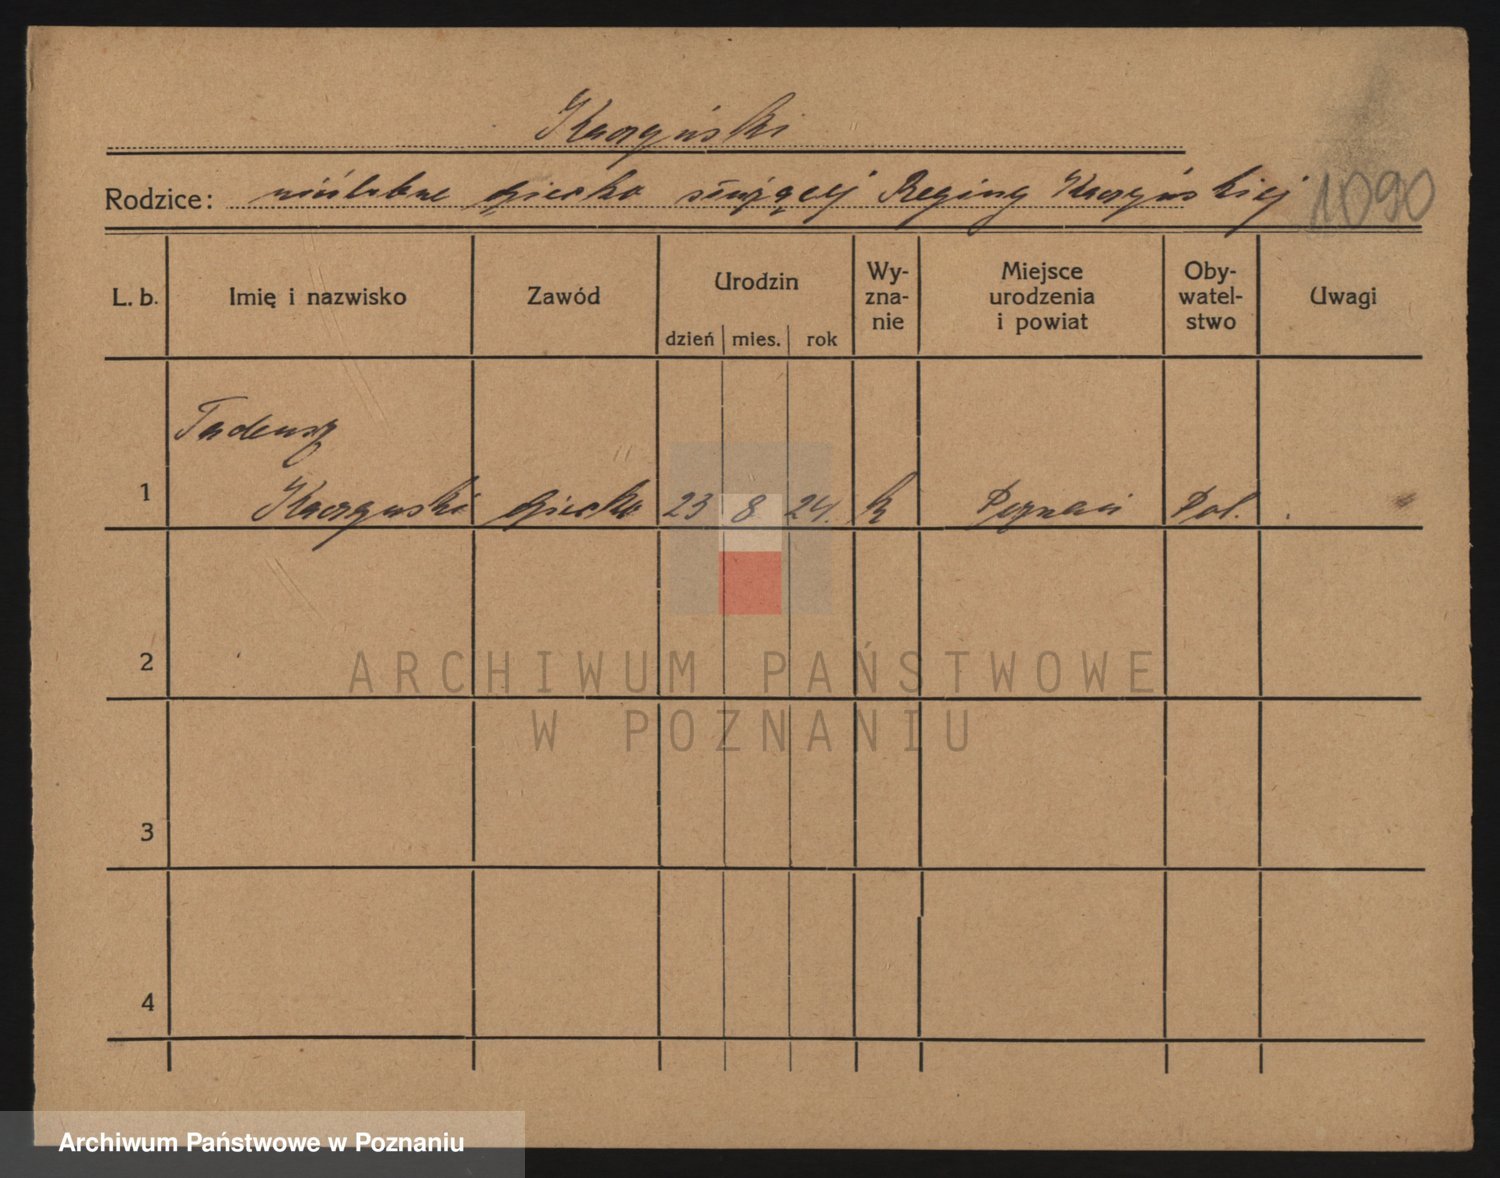 Kaczyński
Rodzice: nieślubne dziecko służącej Reginy Kaczyńskiej 1090
L. b. Imię i nazwisko Zawód Urodzin dzień mies. rok Wy-zna-nie Miejsce urodzenia i powiat Oby-watel-stwo Uwagi
Tadeusz
1 Kaczyński dziecko 23 8 24. k Poznań Pol.
2
ARCHIWUM PAŃSTWOWE
W POZNANIU
3
4
Archiwum Państwowe w Poznaniu